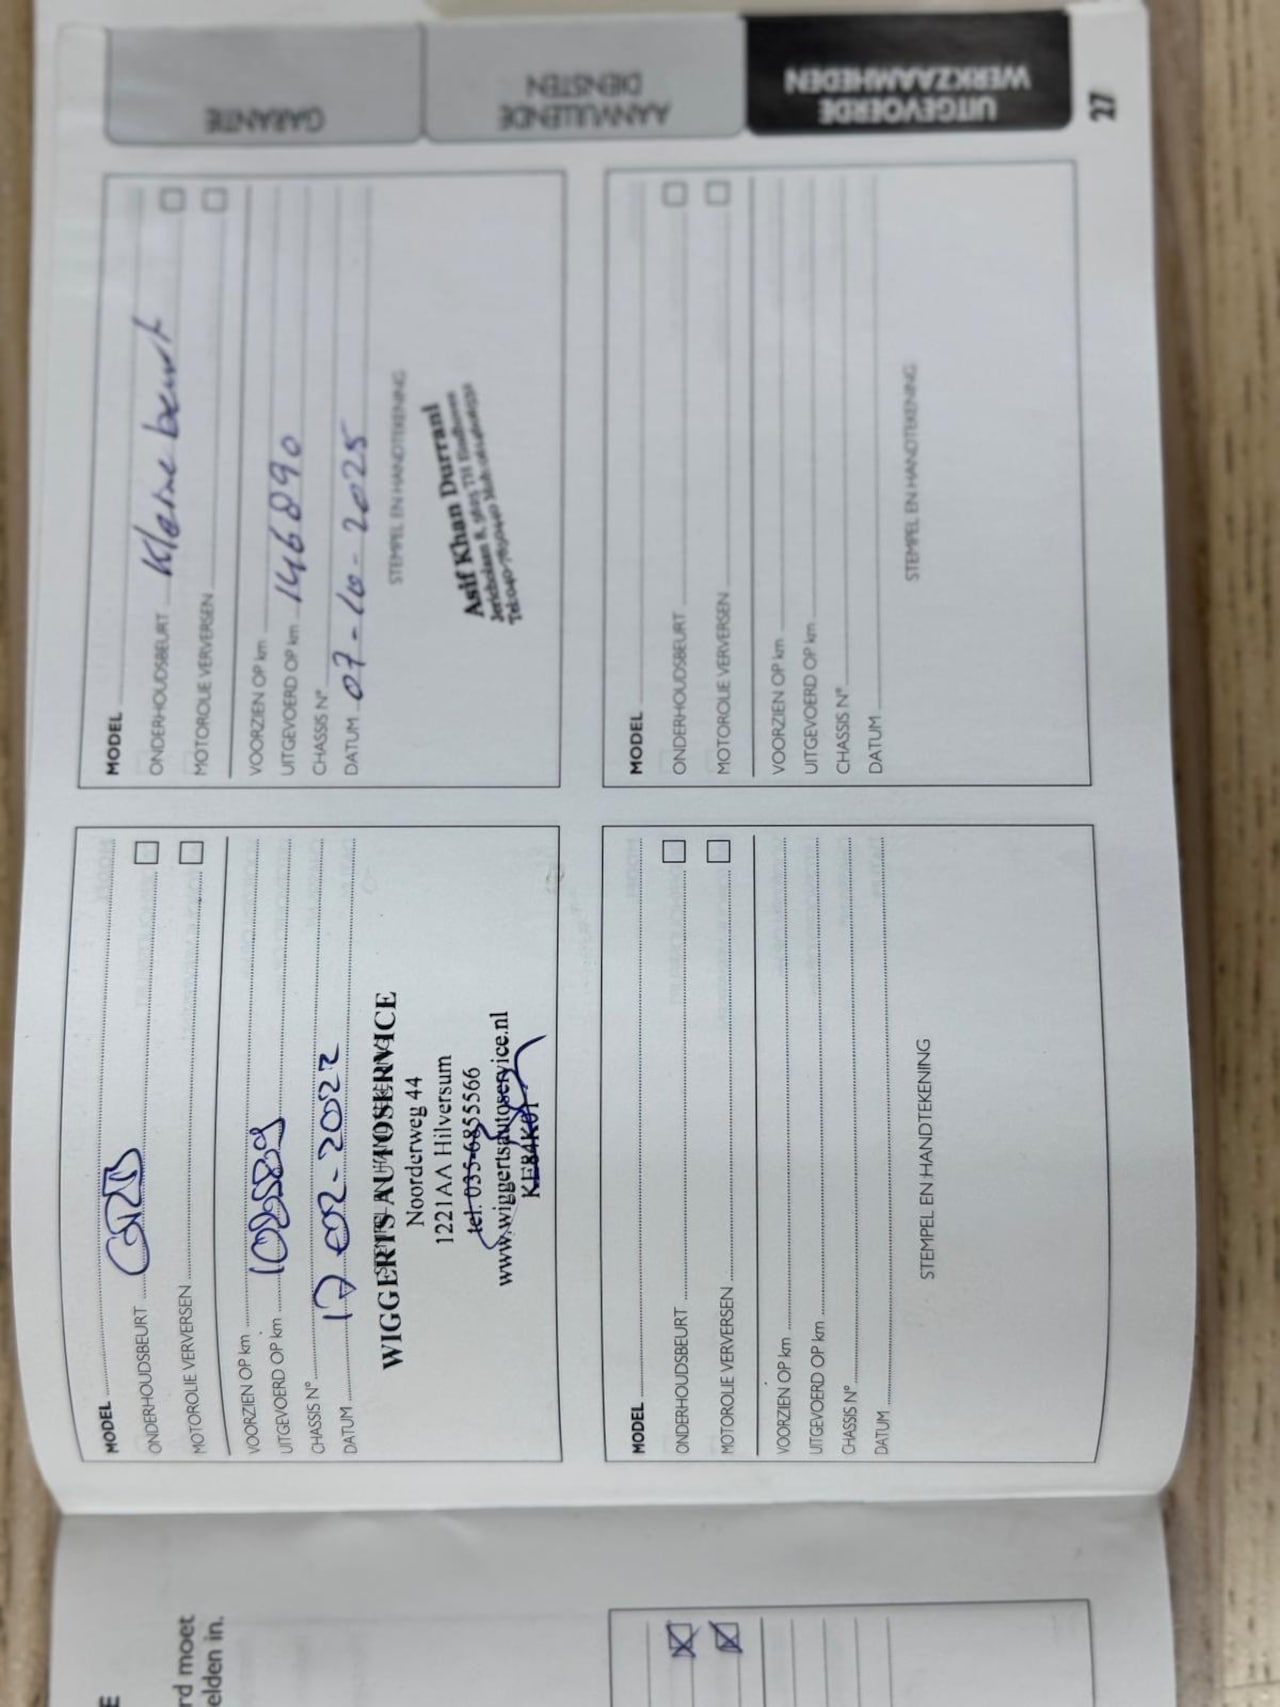 MODEL
ONDERHOUDSBEURT
MOTOROLIE VERVERSEN
VOORZIEN OP km
UITGEVOERD OP km
CHASSIS N°
DATUM 17 02-2022
WIGGERTS AUTOSERVICE
Noorderweg 44
1221AA Hilversum
tel. 035-6855566
www.wiggertsautoservice.nl
KE84K01
MODEL
ONDERHOUDSBEURT Kleine beurt
MOTOROLIE VERVERSEN
VOORZIEN OP km
UITGEVOERD OP km 146890
CHASSIS N°
DATUM 07-10-2025
STEMPEL EN HANDTEKENING
Asif Khan Durrani
MODEL
ONDERHOUDSBEURT
MOTOROLIE VERVERSEN
VOORZIEN OP km
UITGEVOERD OP km
CHASSIS N°
DATUM
STEMPEL EN HANDTEKENING
MODEL
ONDERHOUDSBEURT
MOTOROLIE VERVERSEN
VOORZIEN OP km
UITGEVOERD OP km
CHASSIS N°
DATUM
STEMPEL EN HANDTEKENING
GARANTIE
AANVULLENDE
DIENSTEN
UITGEVOERDE
WERKZAAMHEDEN
27
E
rd moet
elden in.